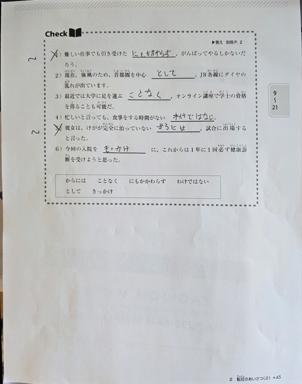 Check
▶答え 別冊P. 2
2
1) 難しい仕事でも引き受けた にもかかわらず 、がんばってやるしかないだろう。
2) 現在、強風のため、首都圏を中心 として 、JR各線にダイヤの乱れが出ています。
3) 最近では大学に足を運ぶ ことなく 、オンライン講座で学士の資格を得ることも可能だ。
4) 忙しいと言っても、食事をする時間がない わけではない。
2
5) 彼女は、けがが完全に治っていない からには 、試合に出場すると言った。
6) 今回の入院を きっかけ に、これからは1年に1回必ず健康診断を受けようと思った。
からには ことなく にもかかわらず わけではない
として きっかけ
9
21